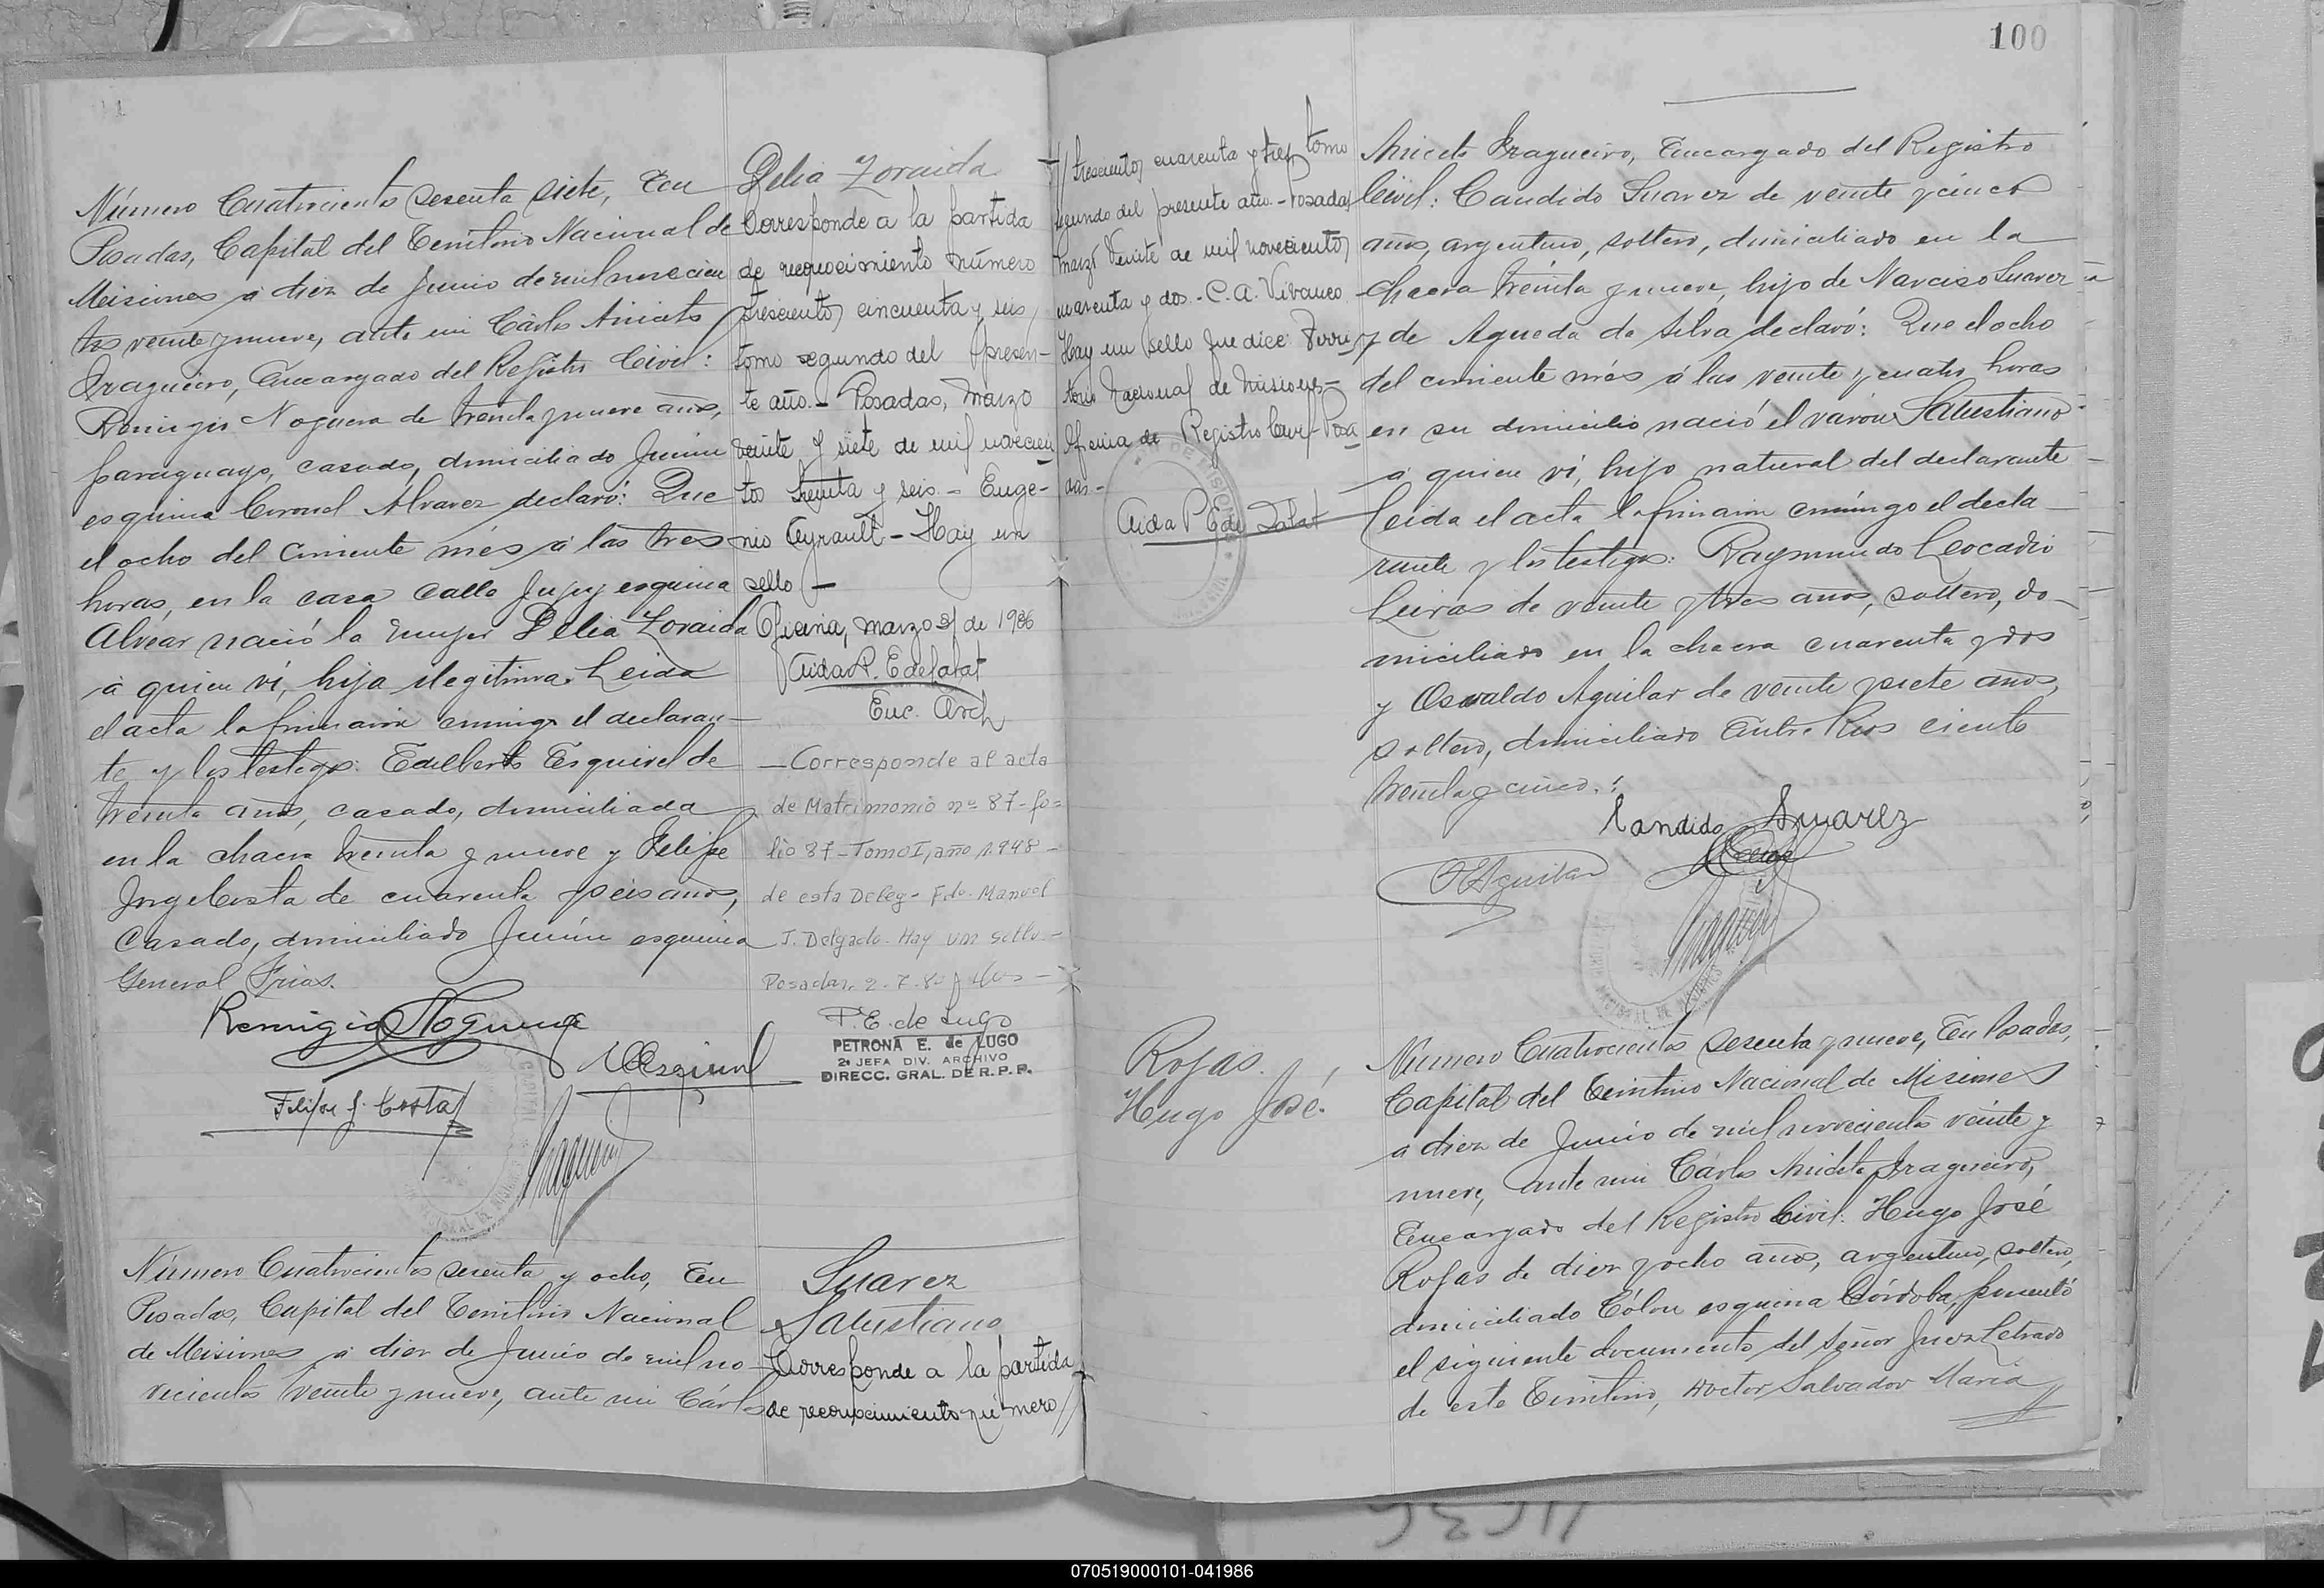 100
Número Cuatrocientos sesenta siete, En
Posadas, Capital del Territorio Nacional de
Misiones á diez de Junio de mil novecien
tos veinte y nueve, ante mi Cárlos Aniceto
Fragueiro, Encargado del Registro Civil:
Remigio Noguera de treinta y nueve años,
paraguayo, casado, domiciliado Junin
esquina Coronel Alvarez declaró: Que
el ocho del corriente més á las tres
horas, en la casa calle Jujuy esquina
Alvear nació la mujer Delia Zoraida
á quien ví, hija ilegitima. Leida
el acta la firmaron conmigo el declaran-
te y los testigos: Edelberto Esquivel de
treinta años, casado, domiciliado
en la chacra treinta y nueve y Felipe
Jorge Costa de cuarenta y seis años,
casado, domiciliado Junin esquina
General Frias.
Remigio Noguera
Esquivel
Felipe J. Costa
Fragueiro
Delia Zoraida
Corresponde a la partida
de reconocimiento número
trescientos cincuenta y seis,
tomo segundo del presen-
te año.- Posadas, Marzo
veinte y siete de mil novecien
tos treinta y seis.- Euge-
nio Ayrault - Hay un
sello -
Oficina, marzo 31 de 1936
Aida R. E de Salat
Enc. Arch
- Corresponde al acta
de Matrimonio nº 87 - fo=
lio 87 - Tomo I, año 1.948 -
de esta Deleg - Fdo. Manuel
J. Delgado. Hay un sello -
Posadas, 2-7-80
P. E. de Lugo
PETRONA E. de LUGO
2ª JEFA DIV. ARCHIVO
DIRECC. GRAL. DE R. P. P.
Número Cuatrocientos sesenta y ocho, En
Posadas, Capital del Territorio Nacional
de Misiones á diez de Junio de mil no
vecientos veinte y nueve, ante mi Cárlos
Suarez
Salustiano
Corresponde a la partida
de reconocimiento número //
// trescientos cuarenta y tres tomo
segundo del presente año.- Posadas
marzo veinte de mil novecientos
cuarenta y dos.- C. A. Vivanco
Hay un sello que dice: Terri
torio Nacional de Misiones -
Oficina de Registro Civil - Posa
das -
Aida R E de Salat
Aniceto Fragueiro, Encargado del Registro
Civil: Candido Suarez de veinte y cinco
años, argentino, soltero, domiciliado en la
chacra treinta y nueve, hijo de Narciso Suarez
y de Agueda da Silva declaró: Que el ocho
del corriente més á las veinte y cuatro horas
en su domicilio nació el varon Salustiano
á quien ví, hijo natural del declarante
Leida el acta la firmaron conmigo el decla
rante y los testigos: Raymundo Leocadio
Leiras de veinte y tres años, soltero, do-
miciliado en la chacra cuarenta y dos
y Osvaldo Aguilar de veinte y siete años,
soltero, domiciliado Entre Rios ciento
treinta y cinco.:
Candido Suarez
O Aguilar
Fragueiro
Rojas.
Hugo José.
Número Cuatrocientos sesenta y nueve, En Posadas,
Capital del Territorio Nacional de Misiones
á diez de Junio de mil novecientos veinte y
nueve, ante mi Cárlos Aniceto Fragueiro,
Encargado del Registro Civil: Hugo José
Rojas de diez y ocho años, argentino, soltero,
domiciliado Cólon esquina Córdoba, presentó
el siguiente documento del Señor Juez Letrado
de este Territorio, Doctor Salvador Maria //
070519000101-041986